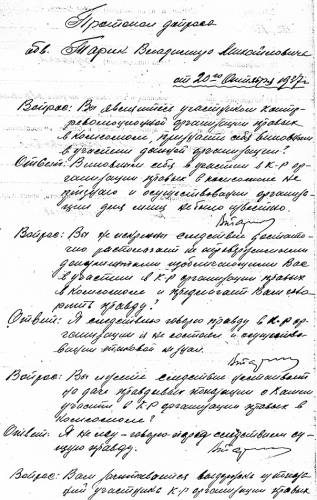 Протокол допроса
обв. Тарик Владимира Михайловича
от 20го Октября 1937 г.
Вопрос: Вы являетесь участником контр
революционной организации правых
в комсомоле, признаете себя виновным
в участии данной организации?
Ответ: Виновным себя в участии в К-Р ор-
ганизации правых в комсомоле не
признаю и о существовании организа-
ции для меня не было известно.
Вопрос: Вы не искренны следствие достаточно
располагает не опровержимыми
документами изобличающими Вас
в участии в К-Р организации правых
в Комсомоле и предлагает Вам гово-
рить правду?
Ответ: Я следствию говорю правду в К-Р ор-
ганизации я не состоял и о существо-
вании таковой не знал.
Вопрос: Вы лжете следствие настаивает
на даче правдивых показаний о Вашем
участии в К-Р организации правых в
Комсомоле?
Ответ: Я не лгу - говорю перед следствием су-
щую правду.
Вопрос: Вам зачитывается выдержка из показа-
ний участника К-Р организации правых